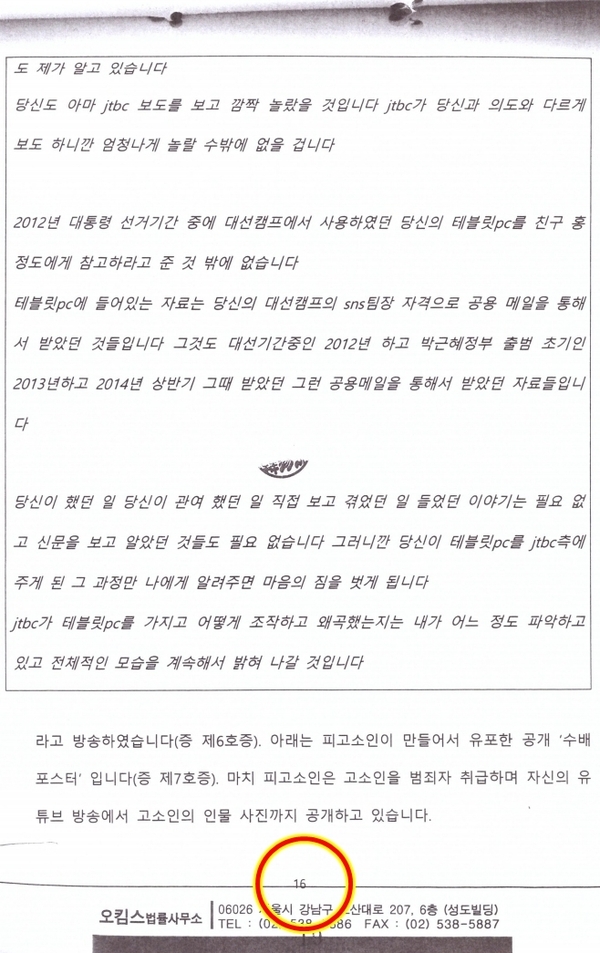 도 제가 알고 있습니다
당신도 아마 jtbc 보도를 보고 깜짝 놀랐을 것입니다 jtbc가 당신과 의도와 다르게
보도 하니깐 엄청나게 놀랄 수밖에 없을 겁니다
2012년 대통령 선거기간 중에 대선캠프에서 사용하였던 당신의 테블릿pc를 친구 홍
정도에게 참고하라고 준 것 밖에 없습니다
테블릿pc에 들어있는 자료는 당신의 대선캠프의 sns팀장 자격으로 공용 메일을 통해
서 받았던 것들입니다 그것도 대선기간중인 2012년 하고 박근혜정부 출범 초기인
2013년하고 2014년 상반기 그때 받았던 그런 공용메일을 통해서 받았던 자료들입니
다
당신이 했던 일 당신이 관여 했던 일 직접 보고 겪었던 일 들었던 이야기는 필요 없
고 신문을 보고 알았던 것들도 필요 없습니다 그러니깐 당신이 테블릿pc를 jtbc측에
주게 된 그 과정만 나에게 알려주면 마음의 짐을 벗게 됩니다
jtbc가 테블릿pc를 가지고 어떻게 조작하고 왜곡했는지는 내가 어느 정도 파악하고
있고 전체적인 모습을 계속해서 밝혀 나갈 것입니다
라고 방송하였습니다(증 제6호증). 아래는 피고소인이 만들어서 유포한 공개 '수배
포스터' 입니다(증 제7호증). 마치 피고소인은 고소인을 범죄자 취급하며 자신의 유
튜브 방송에서 고소인의 인물 사진까지 공개하고 있습니다.
16
오킴스법률사무소
06026 서울시 강남구 산대로 207, 6층 (성도빌딩)
TEL : (02) 538 5886 FAX : (02) 538-5887